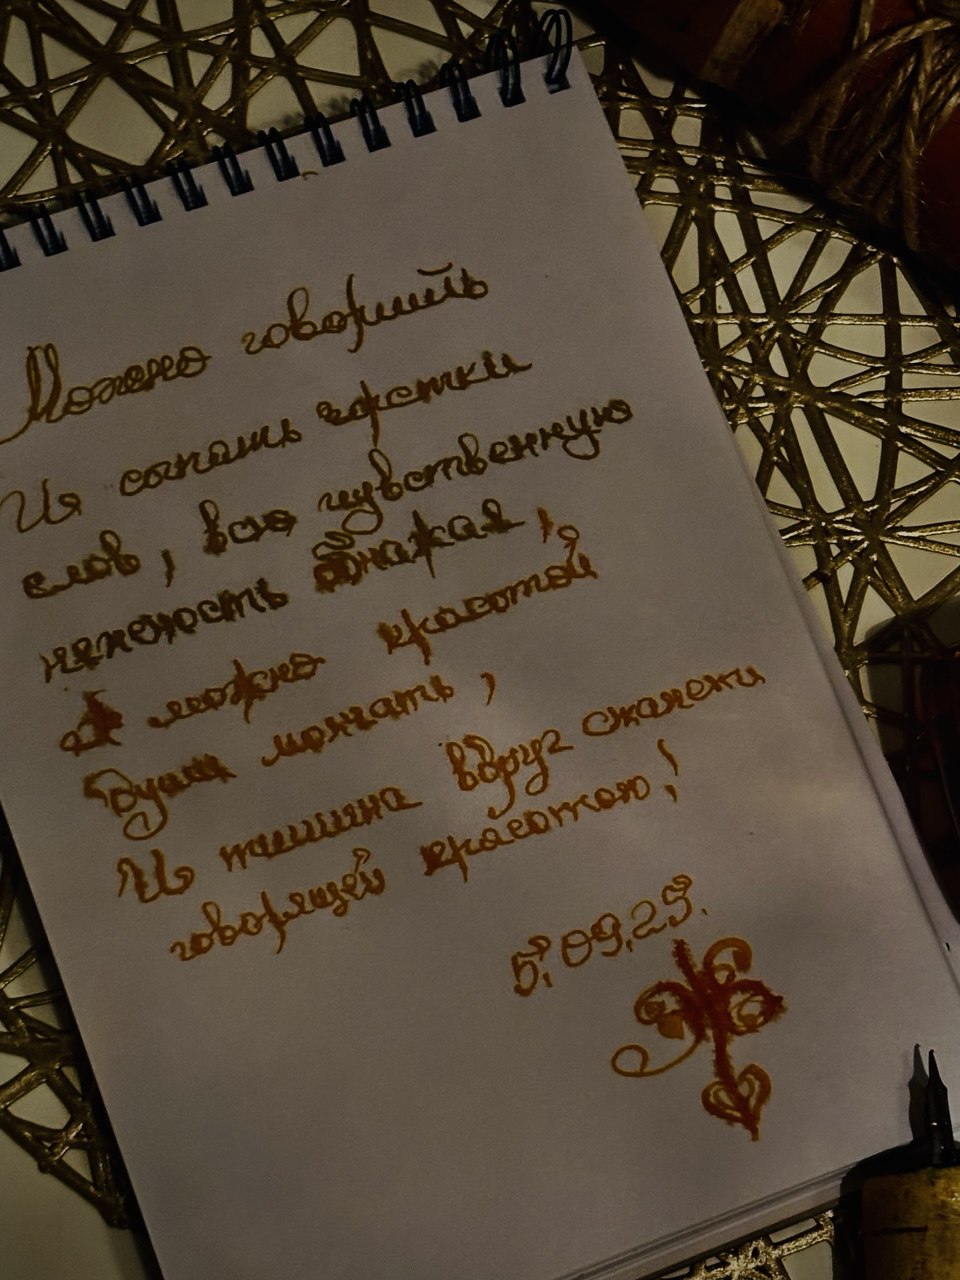 Можно говорить
И сыпать горстки
слов, всю чувственную
нежность обнажая,
А можно красотой
Души молчать,
И тишина вдруг
говорящей красотою!
5.09.25.